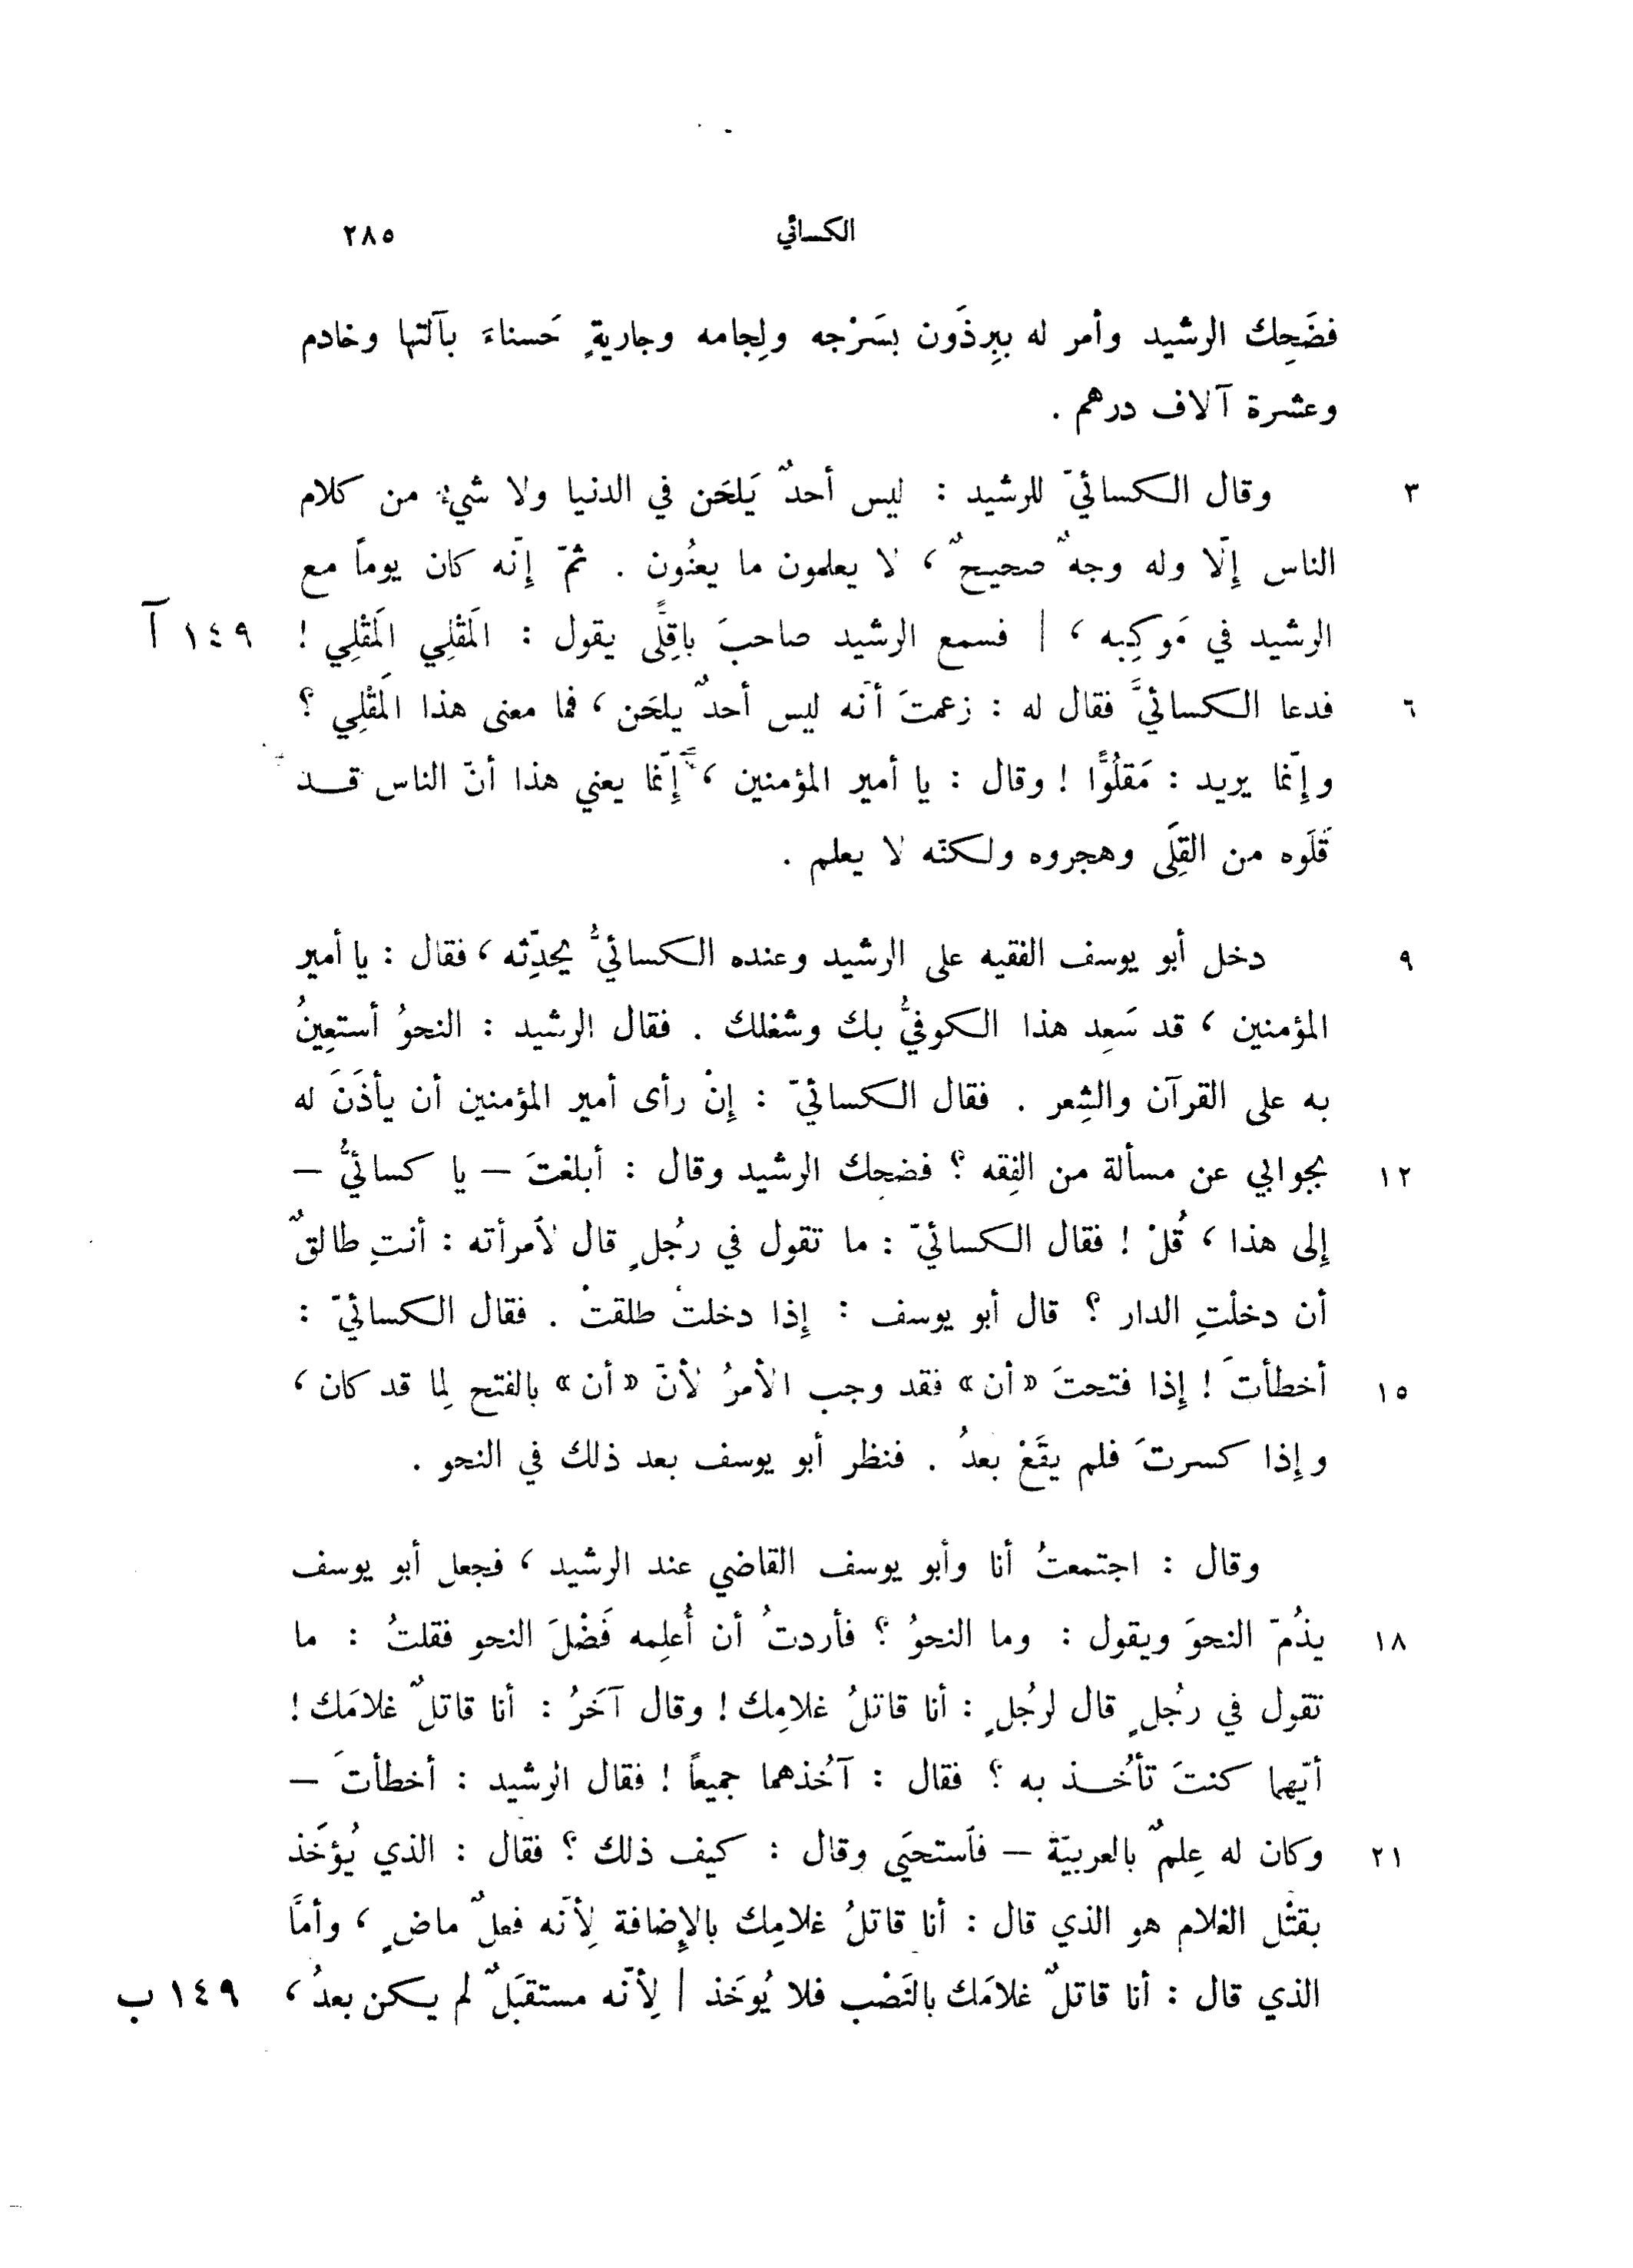 الكسائي ٢٨٥
فضَحِك الرشيد وأمر له ببِرذَون بسَرْجه ولِجامه وجاريةٍ حَسناءَ بآلتها وخادم
وعشرة آلاف درهم .
٣ وقال الكسائيّ للرشيد : ليس أحدٌ يَلحَن في الدنيا ولا شيءٌ من كلام
الناس إلّا وله وجهٌ صحيحٌ ، لا يعلمون ما يعنُون . ثمّ إنّه كان يوماً مع
الرشيد في مَوكِبه ، | فسمع الرشيد صاحبَ باقِلًّى يقول : المَقْلِي المَقْلِي ! ١٤٩ آ
٦ فدعا الكسائيَّ فقال له : زعمتَ أنّه ليس أحدٌ يلحَن ، فما معنى هذا المَقْلِي ؟
وإنّما يريد : مَقلُوًّا ! وقال : يا أمير المؤمنين ، إنّما يعني هذا أنّ الناس قد
قَلَوه من القِلَى وهجروه ولكنّه لا يعلم .
٩ دخل أبو يوسف الفقيه على الرشيد وعنده الكسائيُّ يحدِّثه ، فقال : يا أمير
المؤمنين ، قد سَعِد هذا الكوفيُّ بك وشغلك . فقال الرشيد : النحوُ أستعِينُ
به على القرآن والشِعر . فقال الكسائيّ : إنْ رأى أمير المؤمنين أن يأذَنَ له
١٢ بجوابي عن مسألة من الفِقه ؟ فضحِك الرشيد وقال : أبلغتَ – يا كسائيُّ –
إلى هذا ، قُلْ ! فقال الكسائيّ : ما تقول في رجُلٍ قال لاُمرأته : أنتِ طالقٌ
أن دخلْتِ الدار ؟ قال أبو يوسف : إذا دخلتْ طلقتْ . فقال الكسائيّ :
١٥ أخطأتَ ! إذا فتحتَ «أن» فقد وجب الأمرُ لأنّ «أن» بالفتح لِما قد كان ،
وإذا كسرتَ فلم يقَعْ بعدُ . فنظر أبو يوسف بعد ذلك في النحو .
وقال : اجتمعتُ أنا وأبو يوسف القاضي عند الرشيد ، فجعل أبو يوسف
١٨ يذُمّ النحوَ ويقول : وما النحوُ ؟ فأردتُ أن أُعلِمه فَضْلَ النحو فقلتُ : ما
تقول في رجُلٍ قال لرجُلٍ : أنا قاتلُ غلامِك ! وقال آخَرُ : أنا قاتلٌ غلامَك !
أيّهما كنتَ تأخُذ به ؟ فقال : آخُذهما جميعاً ! فقال الرشيد : أخطأتَ –
٢١ وكان له عِلمٌ بالعربيّة – فاستحيَى وقال : كيف ذلك ؟ فقال : الذي يُؤخَذ
بقتْل الغلام هو الذي قال : أنا قاتلُ غلامِك بالإضافة لِأنّه فعلٌ ماضٍ ، وأمّا
الذي قال : أنا قاتلٌ غلامَك بالنَصْب فلا يُوخَذ | لِأنّه مستقبَلٌ لم يكن بعدُ ، ١٤٩ ب